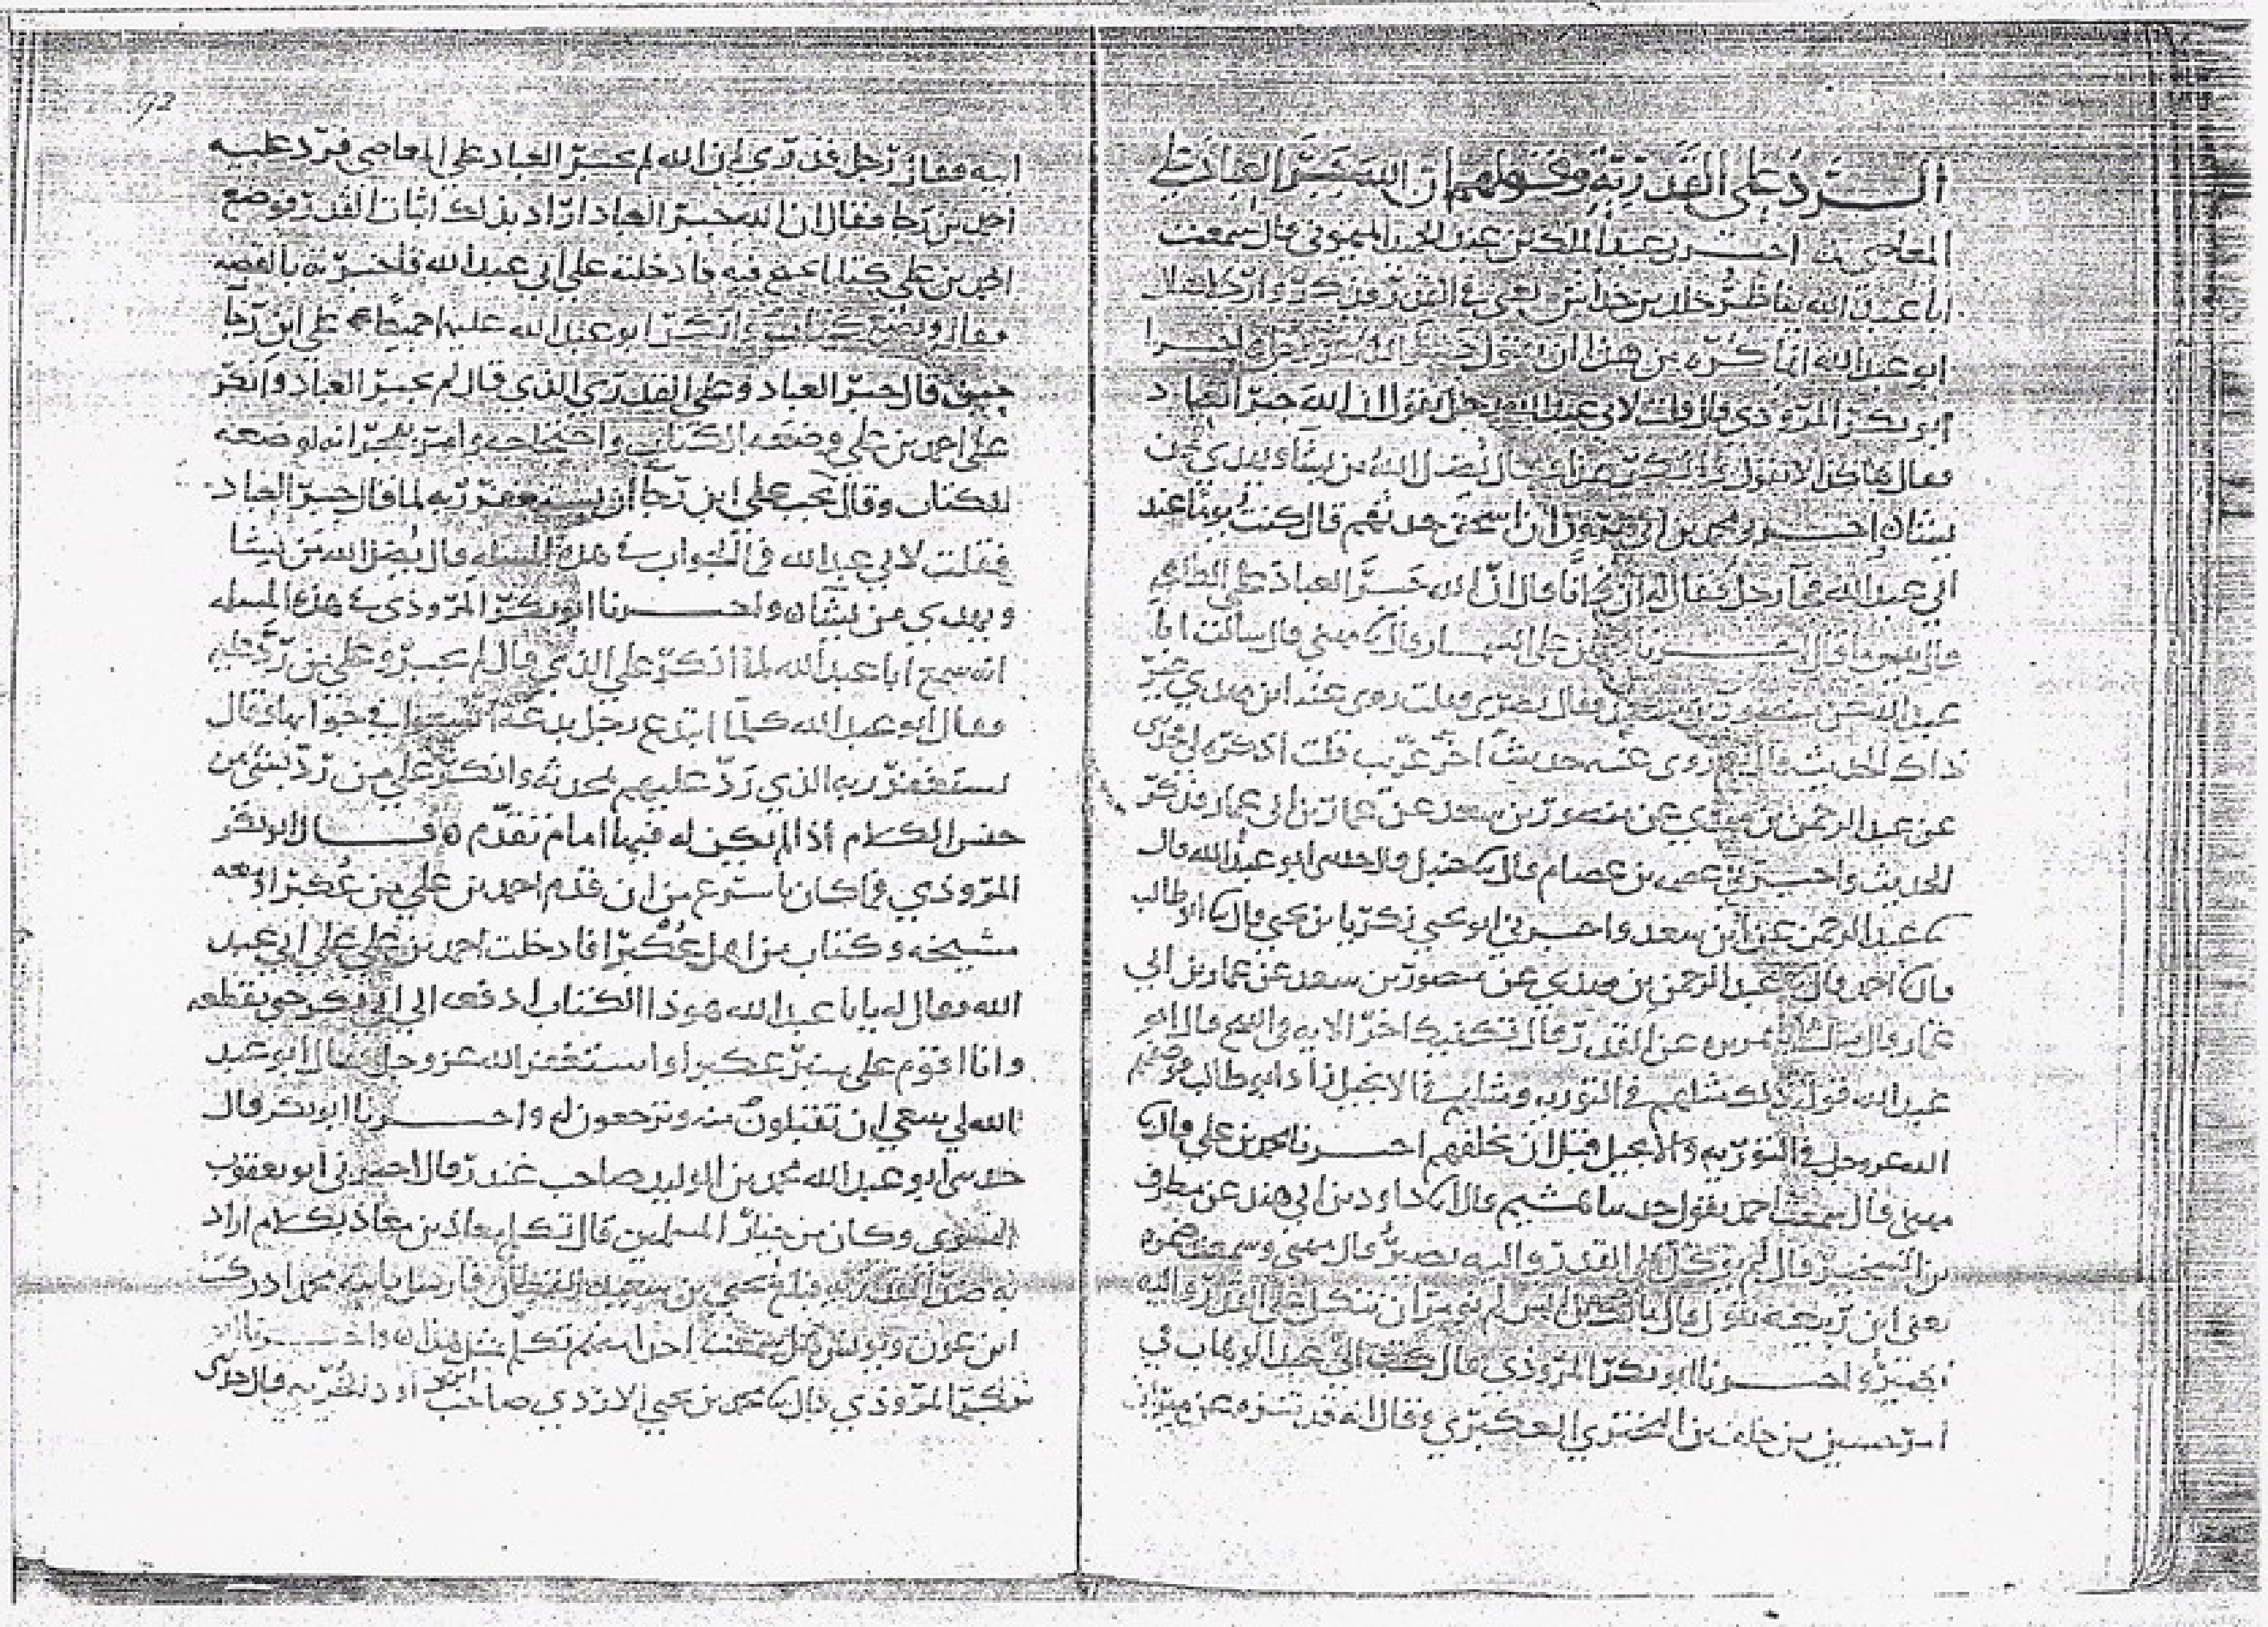 الرد على القدرية وقولهم ان الله جبر العباد على
المعاصي اخبرني عبد الملك بن عبد الحميد الميموني قال سمعت
ابا عبد الله يناظر خلد بن خداش يعني في القدر فذكروا رجلا فقال
ابو عبد الله انما كره من هذا ان يقول اخبرنا
ابو بكر المروذي قال قلت لابي عبد الله رجل يقول ان الله جبر العباد
فقال هكذا لا تقول وانكر هذا وقال يضل الله من يشاء ويهدي من
يشاء اخبرني محمد بن ابي هرون ان اسحق حدثهم قال كنت يوما عند
ابي عبد الله فجا رجل فقال له ان فلانا قال ان الله جبر العباد على الطاعه
قال بئس ما قال اخبرنا علي السمسار قال مهنى قال سالت ابا
عبد الله عن منصور بن سعد فقال بصري قلت روى عنه ابن مهدي غير
ذاك الحديث قال نعم روى عنه حديثا اخر غريب قلت اذكره لي
عن عبد الرحمن بن مهدي عن منصور بن سعد عن عمار بن ابي عمار فذكر
الحديث واخبرني عصمه بن عصام قال حنبل قال حدثني ابو عبد الله قال
عبد الرحمن عن ابن سعد واخبرني ابو يحيى زكريا بن يحيى قال ابو طالب
احمد قال عبد الرحمن بن مهدي عن منصور بن سعد عن عمار بن ابي
عمار قال سالت عن القدر قال تكفيك اخر الايه في الفتح قال ابو
عبد الله قوله ذلك مثلهم في التوريه ومثلهم في الانجيل زاد ابو طالب
الله عز وجل في التوريه والانجيل قبل ان يخلقهم اخبرنا محمد بن علي قال
مهنى قال سمعت احمد يقول حدثنا هشيم قال داود بن ابي هند عن مطرف
بن الشخير قال لم نوكل الى القدر واليه نصير قال مهنى وسمعت ضمره
يعني ابن ربيعه يقول قال لم نومر ان نتكل على القدر واليه
نصير واخبرنا ابو بكر المروذي قال كتب الي عبد الوهاب في
امر حسين بن خلف بن البختري العكبري وقال انه قد تنزه عن ميراث
92
ابيه فقال رجل قدري ان الله لم يجبر العباد على المعاصي فرد عليه
احمد بن رجا فقال ان الله جبر العباد اراد بذلك اثبات القدر فوضع
احمد بن علي كتابا يحتج فيه فادخلته على ابي عبد الله فاخبرته بالقصه
فقال ويضع كتاب وانكر ابو عبد الله عليهما جميعا على ابن رجا
حين قال جبر العباد وعلى القدري الذي قال لم يجبر العباد وانكر
على احمد بن علي وضعه الكتاب واحتجاجه وامر بهجرانه لوضعه
الكتاب وقال يجب على ابن رجا ان يستغفر ربه لما قال جبر العباد
فقلت لابي عبد الله فما الجواب في هذه المسله قال يضل الله من يشا
ويهدي من يشاء واخبرنا ابو بكر المروذي في هذه المسله
انه سمع ابا عبد الله لما انكر على الذي قال لم يجبر وعلى من رد عليه
فقال ابو عبد الله كلما ابتدع رجل بدعة اتسعوا في جوابها وقال
يستغفر ربه الذي رد عليهم بمحدثه وانكر على من رد بشي من
جنس الكلام اذا لم يكن له فيها امام تقدم قال ابو بكر
المروذي فما كان باسرع من ان قدم احمد بن علي من عكبرا ومعه
مشيخه وكتاب من اهل عكبرا فادخلت احمد بن علي على ابي عبد
الله فقال له يابا عبد الله هوذا الكتاب ادفعه الى ابي بكر حتى يقطعه
وانا اقوم على منبر عكبرا واستغفر الله عز وجل فقال ابو عبد
الله لي ينبغي ان تقبلون منه وترجعون له واخبرنا ابو بكر قال
حدثني ابو عبد الله محمد بن الوليد صاحب غندر قال اخبرني ابو يعقوب
وكان من خيار المسلمين قال تكلم معاذ بن معاذ بكلام اراد
به القدريه فبلغ يحيى بن سعيد القطان فارسل بابنه محمد ادركت
ابن عون ويونس هل سمعت احدا منهم تكلم بمثل هذا واخبرنا ابو
بكر المروذي قال محمد بن يحيى الازدي صاحب ابن داود الخريبي قال حدثني